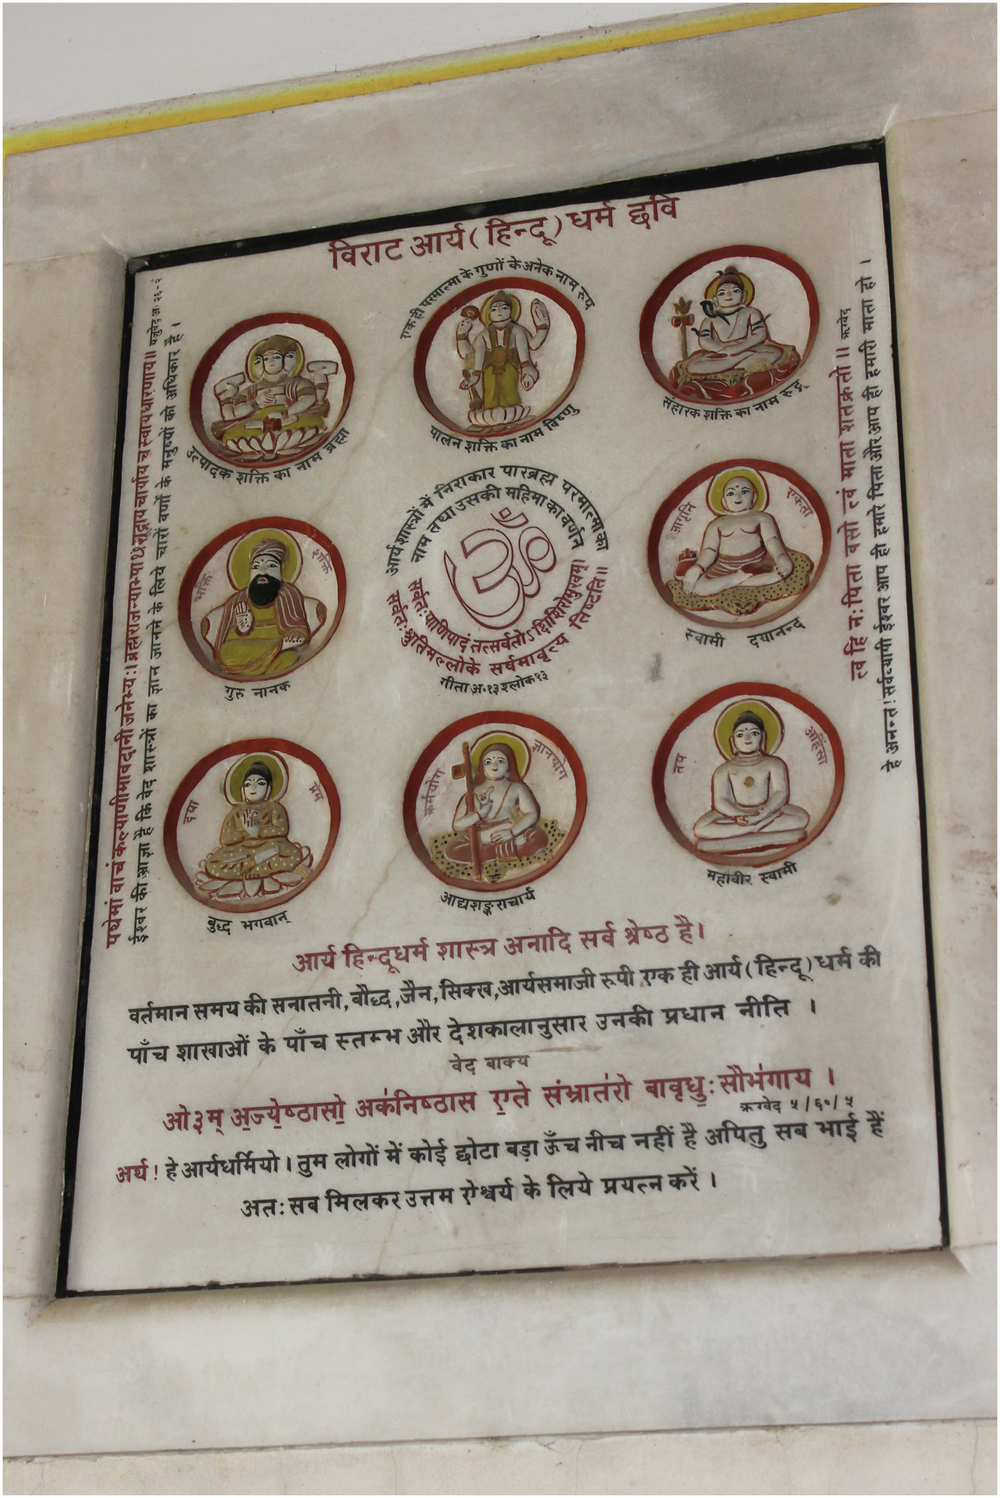 विराट आर्य (हिन्दू) धर्म छवि
एक ही परमात्मा के गुणों के अनेक नाम रूप
उत्पादक शक्ति का नाम ब्रह्मा
पालन शक्ति का नाम विष्णु
संहारक शक्ति का नाम रुद्र
यथेमां वाचं कल्याणीमावदानी जनेभ्यः। ब्रह्मराजन्याभ्याँ शूद्राय चार्याय च स्वाय चारणाय॥ यजुर्वेद अ॰ २६-२
ईश्वर की आज्ञा है कि वेद शास्त्रों का ज्ञान जानने के लिये चारों वर्णों के मनुष्यों को अधिकार है।
आर्य शास्त्रों में निराकार पारब्रह्म परमात्मा का
नाम तथा उसकी महिमा का वर्णन
ॐ
सर्वतःपाणिपादं तत्सर्वतोऽक्षिशिरोमुखम्।
सर्वतःश्रुतिमल्लोके सर्वमावृत्य तिष्ठति॥
गीता अ॰१३ श्लोक १३
त्वं हि नःपिता वसो त्वं माता शतक्रतो॥ ऋग्वेद
हे अनन्त! सर्वव्यापी ईश्वर आप ही हमारे पिता और आप ही हमारी माता हो।
भक्ति शक्ति
गुरु नानक
जागृति एकता
स्वामी दयानन्द
दया प्रेम
बुद्ध भगवान्
कर्मयोग ज्ञानयोग
आद्यशङ्कराचार्य
तप अहिंसा
महावीर स्वामी
आर्य हिन्दूधर्म शास्त्र अनादि सर्व श्रेष्ठ है।
वर्तमान समय की सनातनी, बौद्ध, जैन, सिक्ख, आर्यसमाजी रूपी एक ही आर्य (हिन्दू) धर्म की
पाँच शाखाओं के पाँच स्तम्भ और देशकालानुसार उनकी प्रधान नीति ।
वेद वाक्य
ओ३म् अ॒ज्ये॒ष्ठासो॒ अक॑निष्ठास ए॒ते संभ्रात॑रो वावृधुः॒ सौभ॑गाय ।
ऋग्वेद ५/६०/५
अर्थ! हे आर्यधर्मियो। तुम लोगों में कोई छोटा बड़ा ऊँच नीच नहीं है अपितु सब भाई हैं
अतः सब मिलकर उत्तम ऐश्वर्य के लिये प्रयत्न करें।